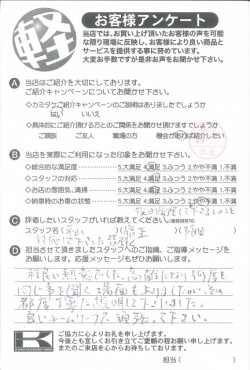 軽
お客様アンケート
当店では、お買い上げ頂いたお客様の声を可能
な限り現場に反映し、お客様により良い商品と
サービスを提供する事に努めています。
大変お手数ですが是非お声をお聞かせ下さい。
A 当店はご紹介を大切にしております。
ご紹介キャンペーンについてお聞かせ下さい。
◇カミタケご紹介キャンペーンのご説明はありましたでしょうか
はい いいえ
◇具体的にご紹介頂ける方とのご関係をお聞かせ頂けますでしょうか
ご親族 ご友人 職場の方 機会があれば紹介したい
B 当店を実際にご利用になった印象をお聞かせ下さい。
◇総合的な満足度 5大満足 4満足 3ふつう 2やや不満 1不満
◇スタッフの対応 5大満足 4満足 3ふつう 2やや不満 1不満
◇お店の雰囲気、清掃 5大満足 4満足 3ふつう 2やや不満 1不満
◇納車時のお車の状態 5大満足 4満足 3ふつう 2やや不満 1不満
C 評価したいスタッフがいれば教えてください。
スタッフ名
D 担当させて頂きましたスタッフへのご指摘、ご指導メッセージを
お願いします。応援メッセージもぜひお願いします。
同じ事を聞く場面もありましたが、その
都度丁寧に説明して下さいました。
良いチームワークで頑張って下さい。
K
ご協力に心よりお礼を申し上げます。
今後とも宜しくお引き立てご愛顧の程お願い申し上げます。
またのご来店を心からお待ちしております。
担当( )